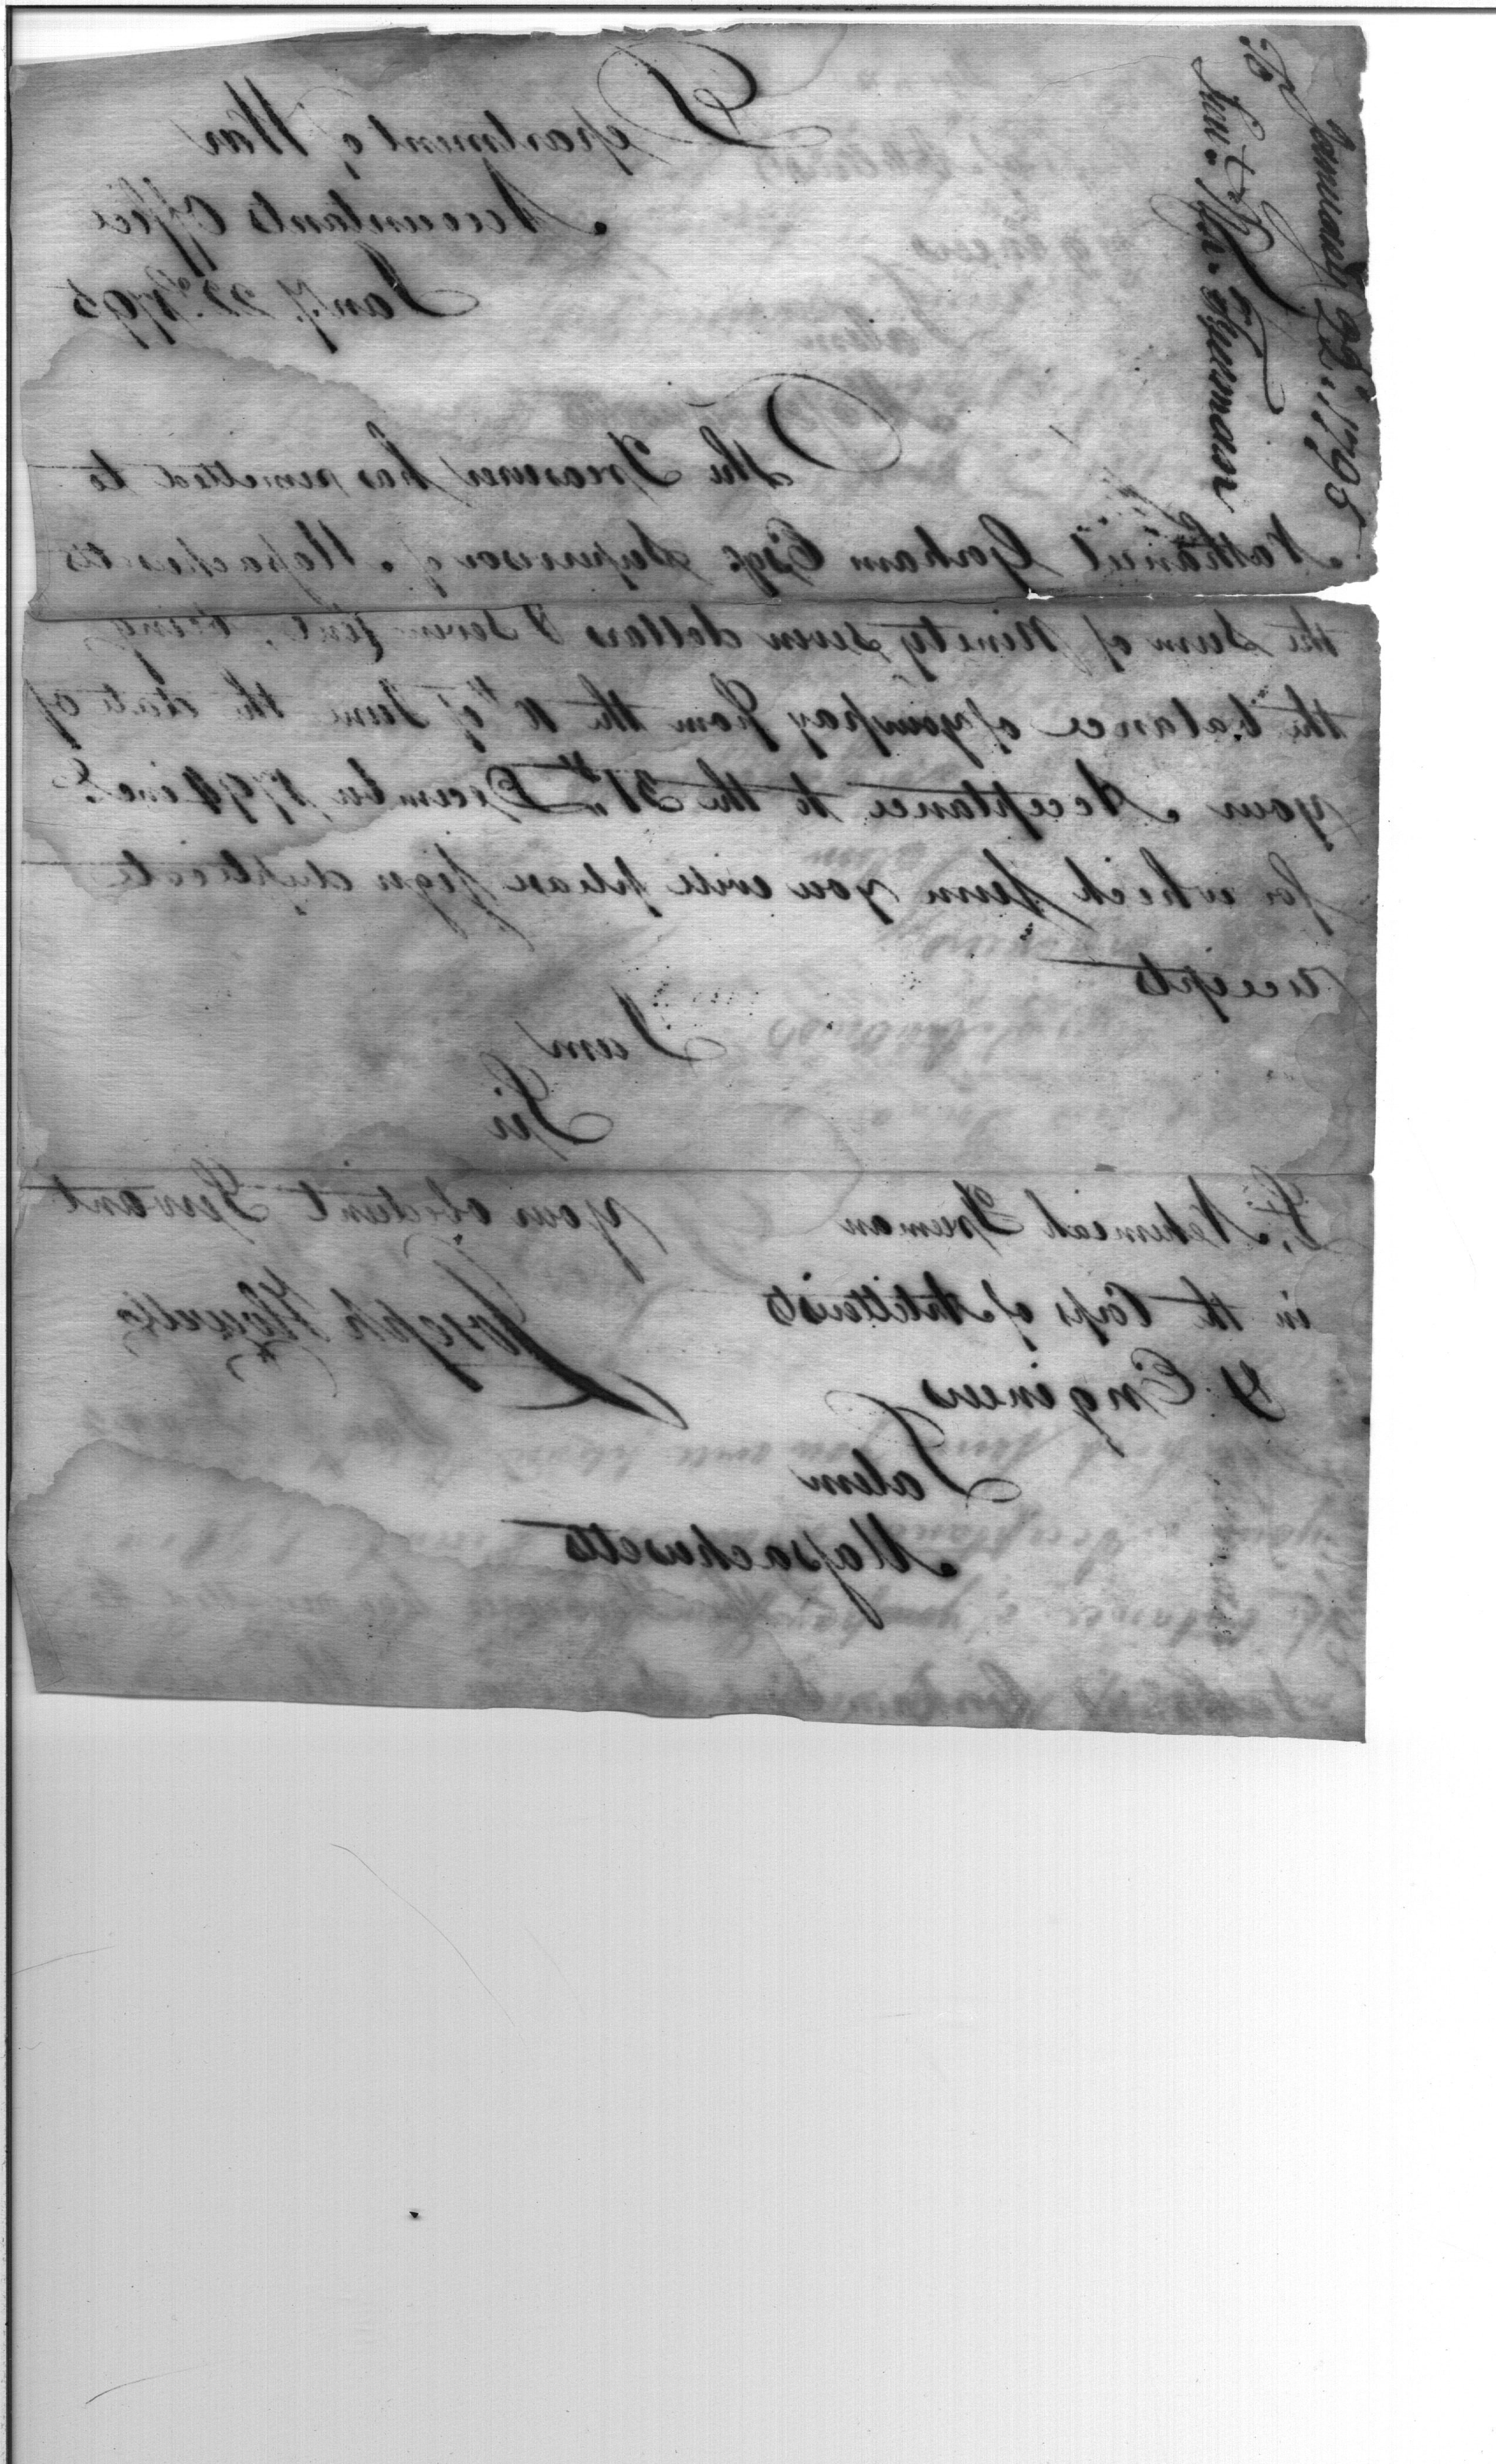 To
Lt. Freeman
January 22d. 1795
Department of War
Accountants Office
Jany. 22d. 1795
The Treasurer has remitted to
Nathaniel Gorham Esqr. Supervisor of Massachusetts
the Sum of Ninety Seven dollars & Seven Cents, being
the balance of your pay from the of June the date of
your Acceptance to the 31st. December 1794 incl.
for which sum you will please sign duplicate
receipts
I am
Sir
your obedient Servant
Joseph Howell
Lt. Nehemiah Freeman
in the Corps of Artillerists
& Engineers
Salem
Massachusetts